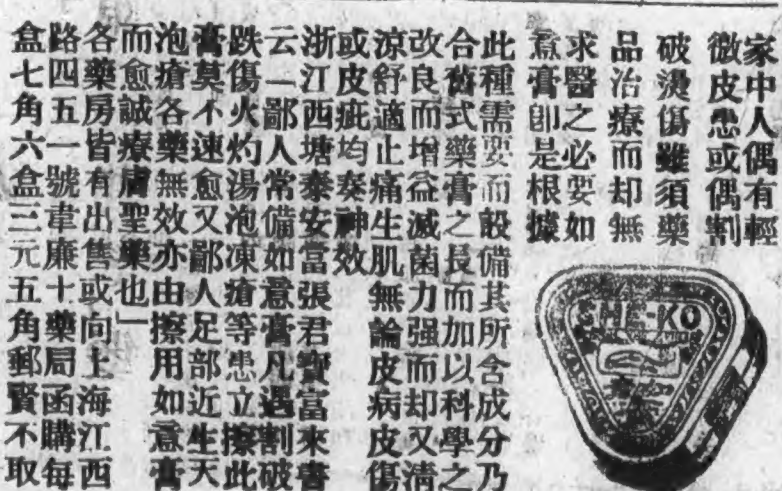 家中人偶有輕
微皮患或偶割
破燙傷雖須藥
品治療而却無
求醫之必要如
意膏卽是根據
此種需要而設備其所含成分乃
合舊式藥膏之長而加以科學之
改良而增益滅菌力强而却又清
涼舒適止痛生肌無論皮病皮傷
或皮疵均奏神效
浙江西塘泰安當張君寶富來書
云「鄙人常備如意膏凡遇割破
跌傷火灼湯泡凍瘡等患立擦此
膏莫不速愈又鄙人足部近生天
泡瘡各藥無效亦由擦用如意膏
而愈誠療膚聖藥也」
各藥房皆有出售或向上海江西
路四五一號韋廉士藥局函購每
盒七角六盒三元五角郵費不取